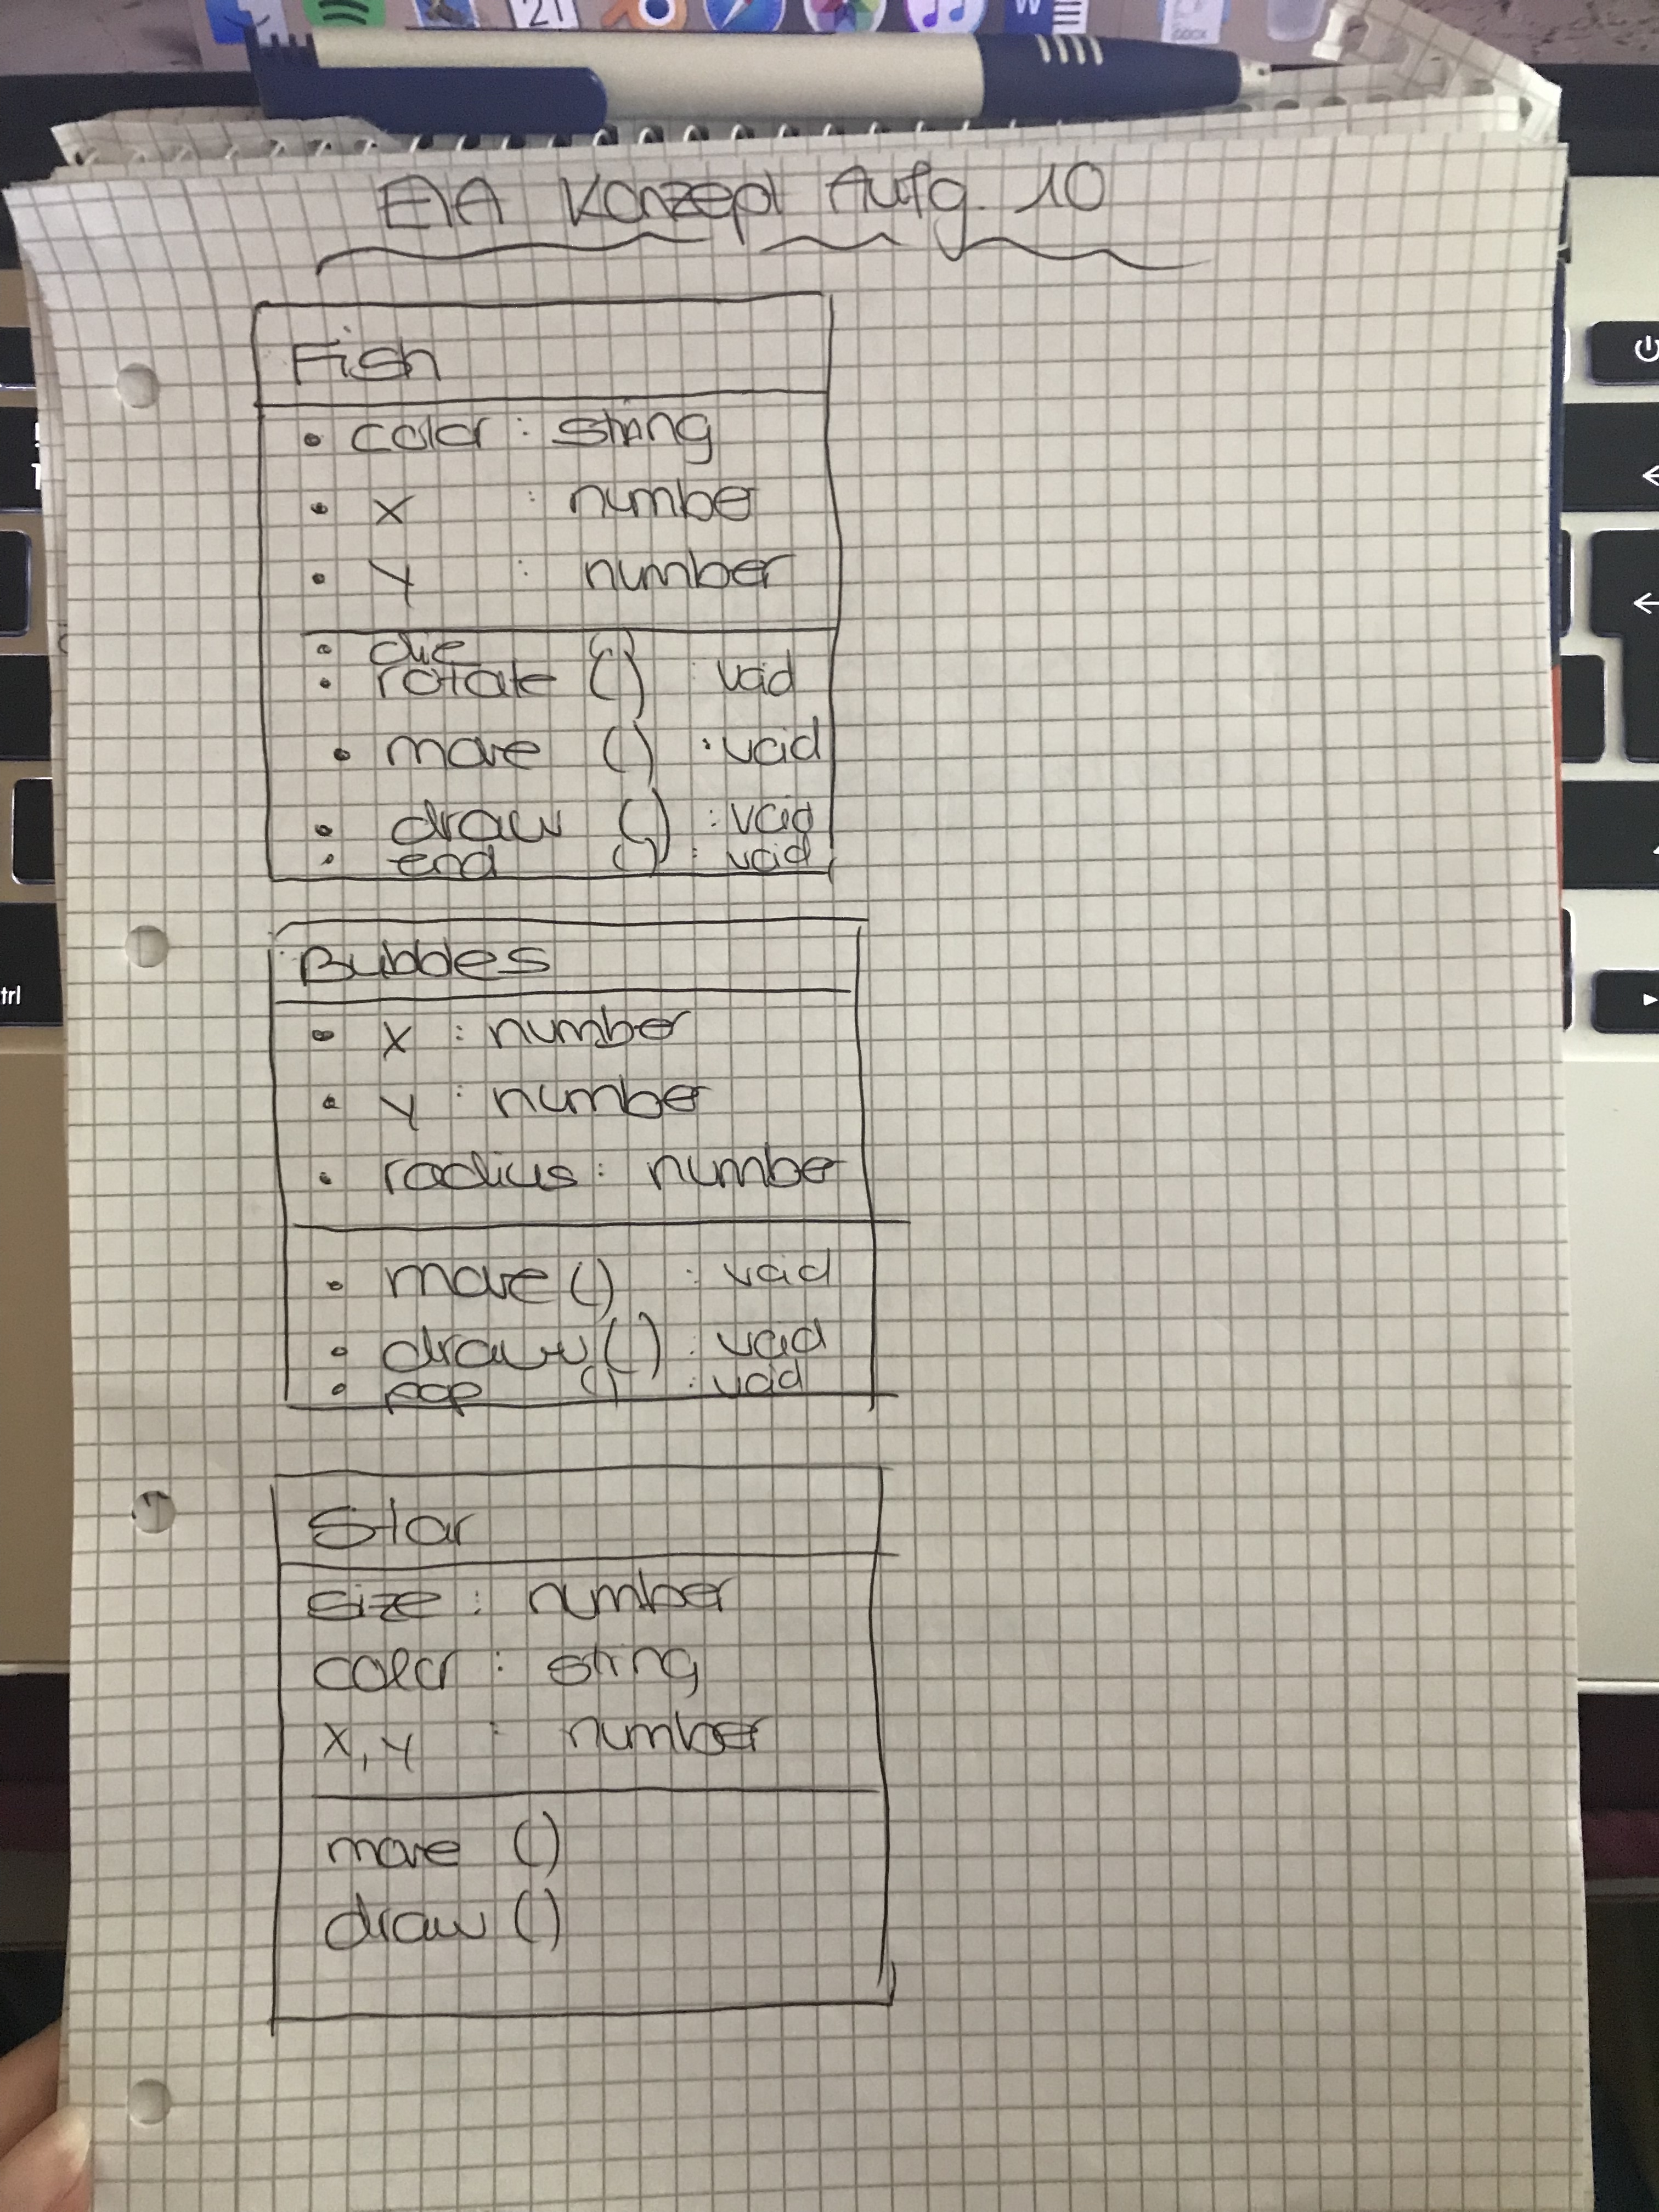 21
W
DOCX
EIA Konzept Aufg. 10
Fish
• color : string
• x : number
• y : number
• die ()
• rotate () : void
• move () : void
• draw () : void
• end () : void
Bubbles
• x : number
• y : number
• radius : number
• move () : void
• draw () : void
• pop () : void
Star
size : number
color : string
x, y : number
move ()
draw ()
trl